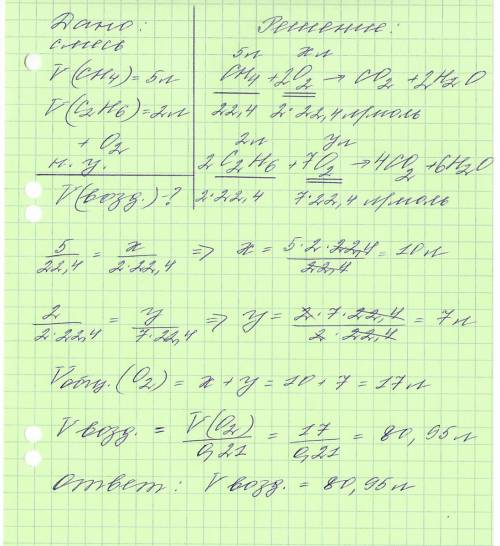 Дано:
смесь
V(CH4)=5л
V(C2H6)=2л
+ O2
н. у.
V(возд.)-?
Решение:
5л хл
CH4 + 2O2 → CO2 + 2H2O
22,4 2·22,4 л/моль
2л ул
2C2H6 + 7O2 → 4CO2 + 6H2O
2·22,4 7·22,4 л/моль
5/22,4 = x/2·22,4 => x = 5·2·22,4/22,4 = 10л
2/2·22,4 = y/7·22,4 => y = 2·7·22,4/2·22,4 = 7л
Vобщ.(O2) = x + y = 10 + 7 = 17л
Vвозд. = V(O2)/0,21 = 17/0,21 = 80,95л
Ответ: Vвозд. = 80,95л